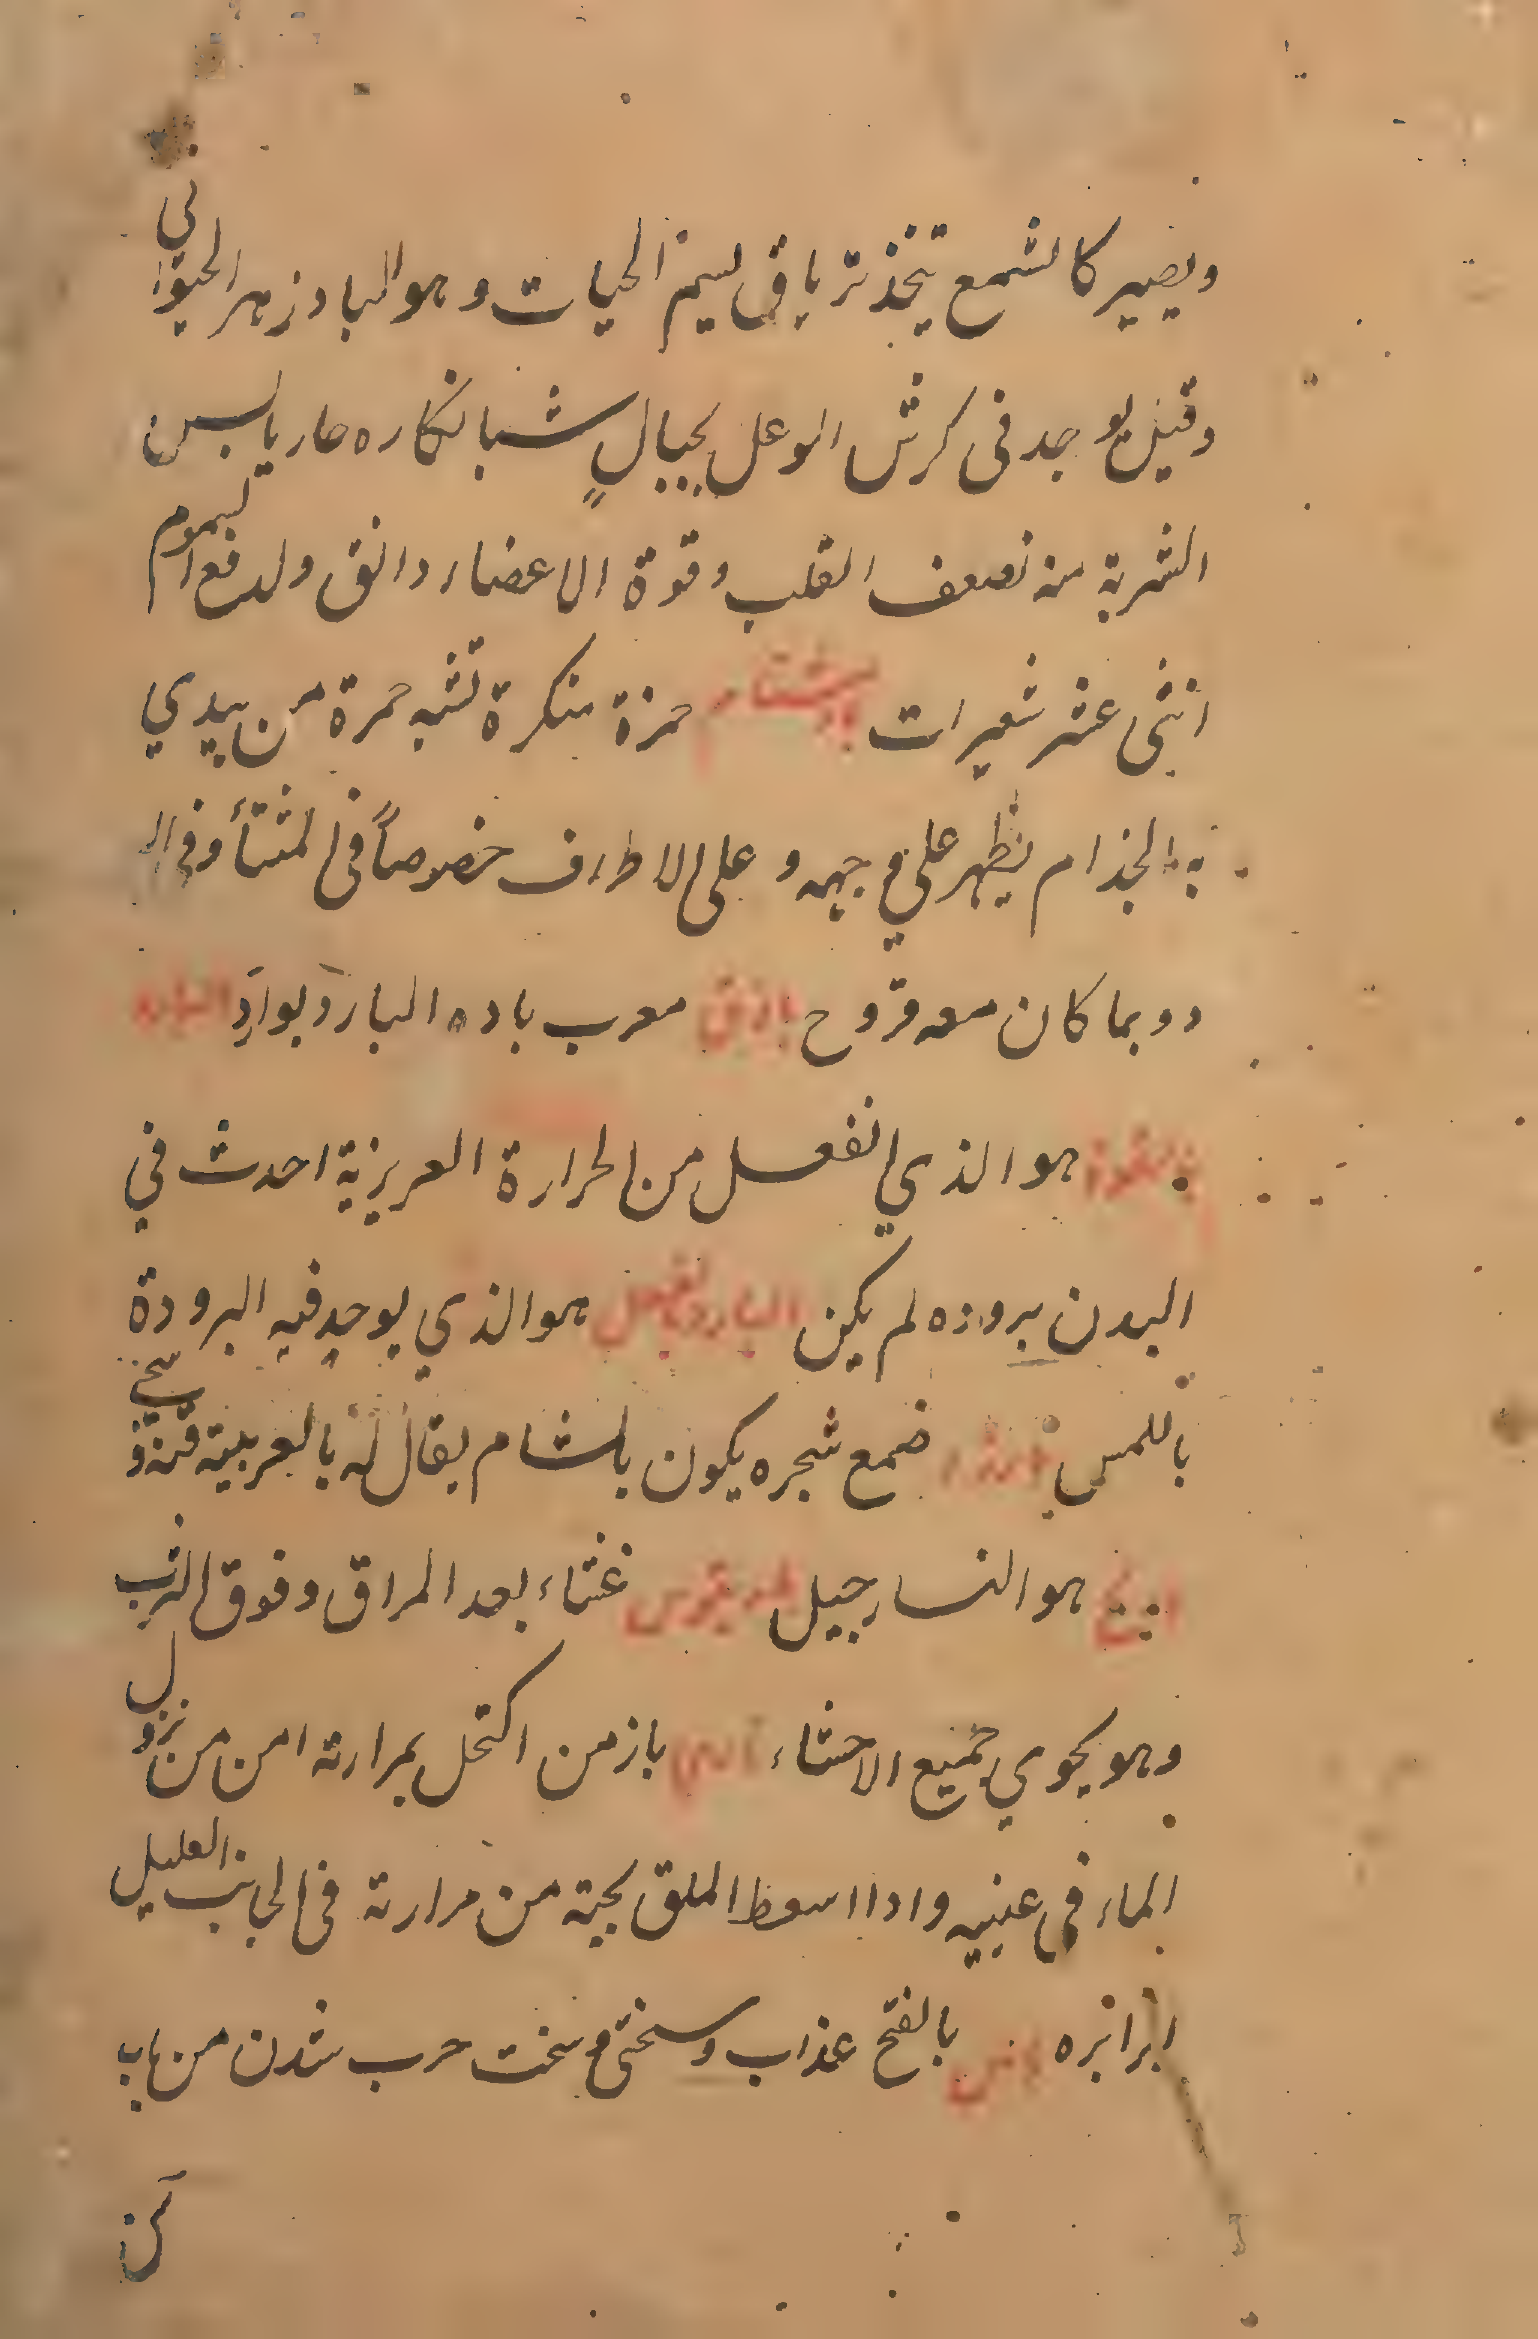 ويصير كالشمع يتخذ ترياقى لسم الحيات وهو البادزهر الحيوانى
وقيل يوجد فى كرش الوعل بجبال شبانكاره حار يابس
الشربة منه لضعف القلب وقوة الاعضاء دانق ولدفع السموم
اثنى عشر شعيرات بادشنام حمرة منكرة تشبه حمرة من يبتدي
به الجذام يظهر على وجهه وعلى الاطراف خصوصاً فى الشتاء وفى ال
دوبما كان معه قروح باذق معرب باده البارد بوارد البارد
بالقوة هو الذي انفعل من الحرارة الغريزية احدث في
البدن بروده لم يكن البارد بالفعل هو الذي يوجد فيه البرودة
باللمس بارزد صمغ شجره يكون بالشام يقال له بالعربية قنة و
هو النارجيل غشاء بعد المراق وفوق الثرب
وهو يحوي جميع الاحشاء بازي باز من اكتحل بمرارته امن من نزول
الماء فى عينيه واذا اسعط الملق بحبة من مرارته فى الجانب العليل
ابرا ابره باس بالفتح عذاب وسختى و سخت حرب شدن من باب